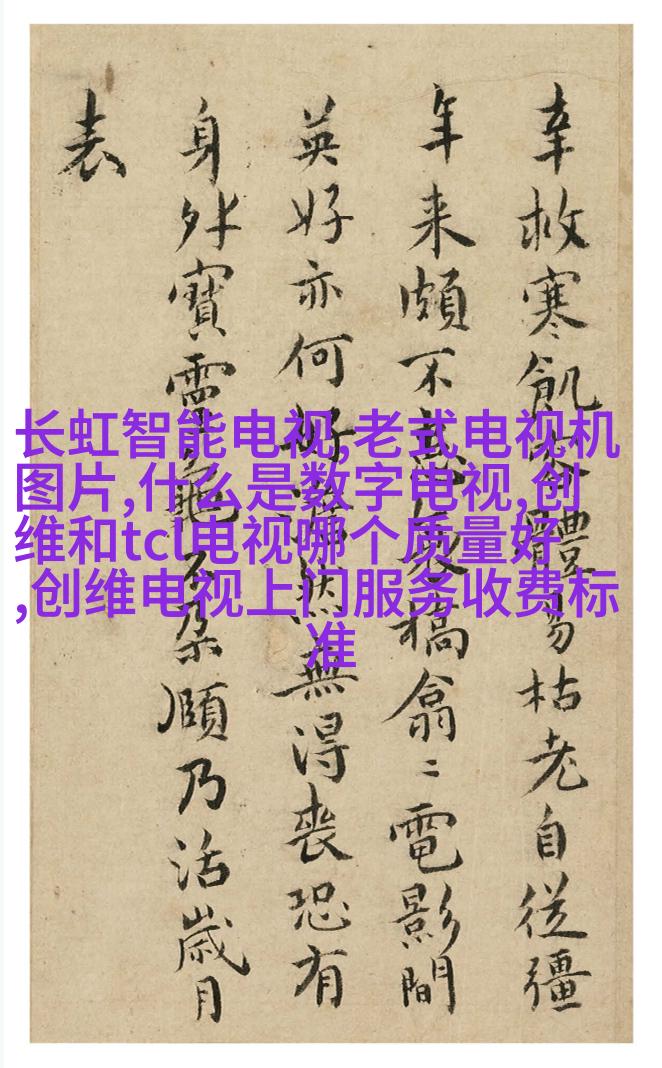 长虹智能电视,老式电视机
图片,什么是数字电视,创
维和tcl电视哪个质量好
,创维电视上门服务收费标
准
幸救寒飢體易枯老自從彊
年来頗不稿翕二電影間
英好亦何好然無得喪恐有
身外寳靈龜不朶頤乃活歳月
表